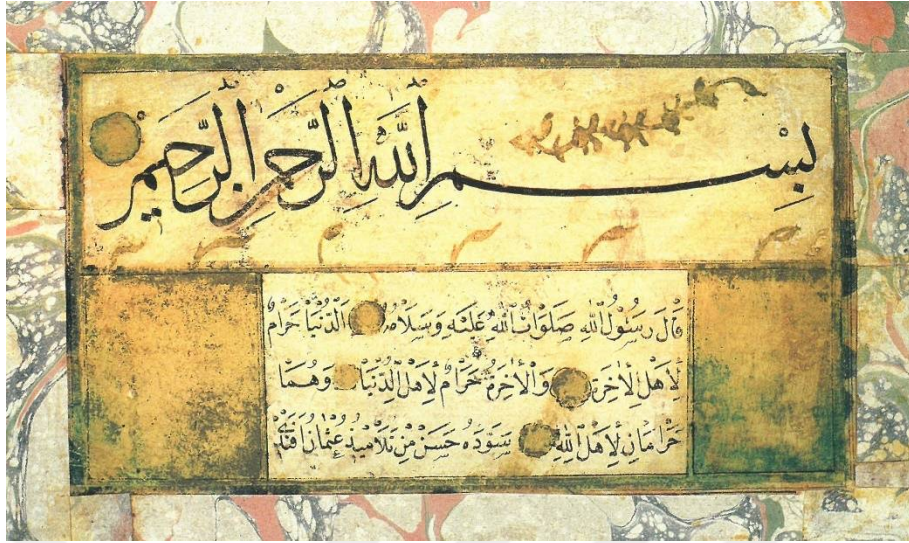 بِسْمِ اللّٰهِ الرَّحْمٰنِ الرَّحِيمِ
قَالَ رَسُولُ اللّٰهِ صَلَوَاتُ اللّٰهِ عَلَيْهِ وَسَلَامُهُ اَلدُّنْيَا حَرَامٌ
لِاَهْلِ الْاٰخِرَةِ وَالْاٰخِرَةُ حَرَامٌ لِاَهْلِ الدُّنْيَا وَهُمَا
حَرَامَانِ لِاَهْلِ اللّٰهِ سَوَّدَهُ حَسَنْ مِنْ تَلَامِيذِ عُثْمَانَ